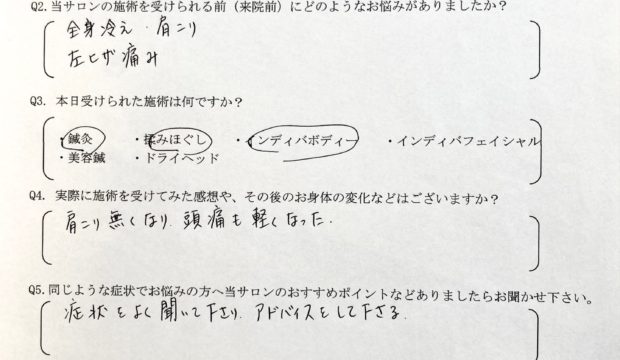 Q2. 当サロンの施術を受けられる前（来院前）にどのようなお悩みがありましたか？
全身冷え・肩こり
左ヒザ痛み
Q3. 本日受けられた施術は何ですか？
・鍼灸 ・揉みほぐし ・インディバボディー ・インディバフェイシャル
・美容鍼 ・ドライヘッド
Q4. 実際に施術を受けてみた感想や、その後のお身体の変化などはございますか？
肩こり無くなり、頭痛も軽くなった.
Q5. 同じような症状でお悩みの方へ当サロンのおすすめポイントなどありましたらお聞かせ下さい。
症状をよく聞いて下さり、アドバイスをして下さる.